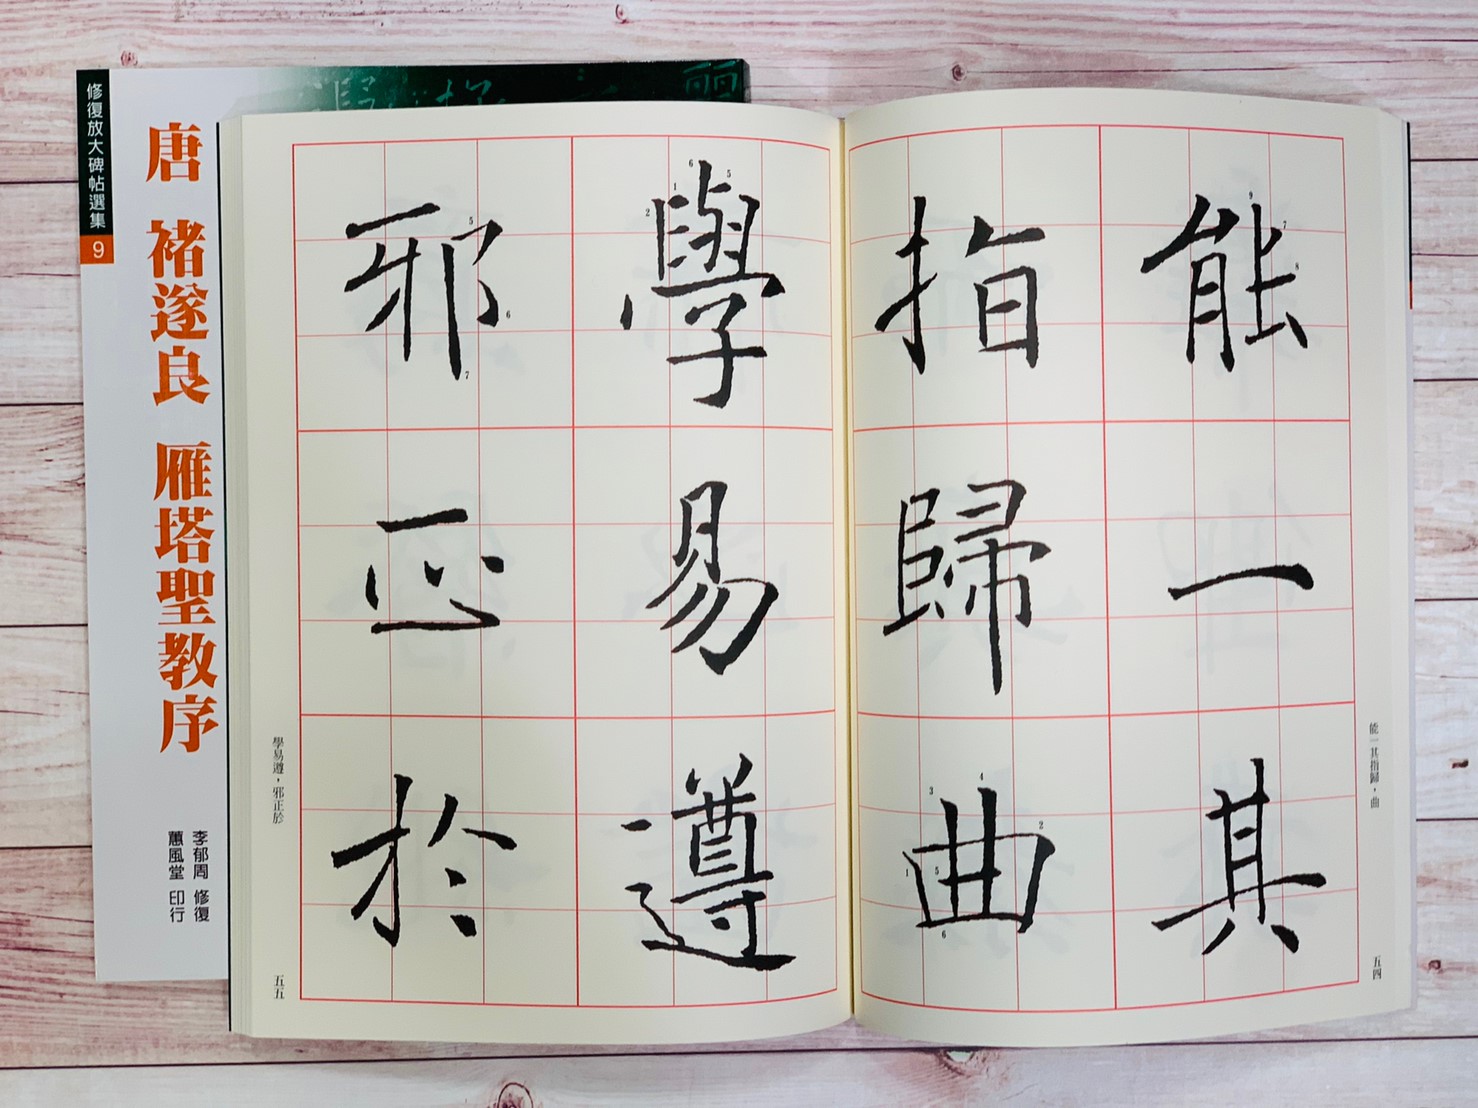 修復放大碑帖選集
9
唐 褚遂良 雁塔聖教序
李郁周 修復
蕙風堂 印行
能一其
指歸曲
能一其指歸，曲
五四
學易遵
邪正於
學易遵，邪正於
五五